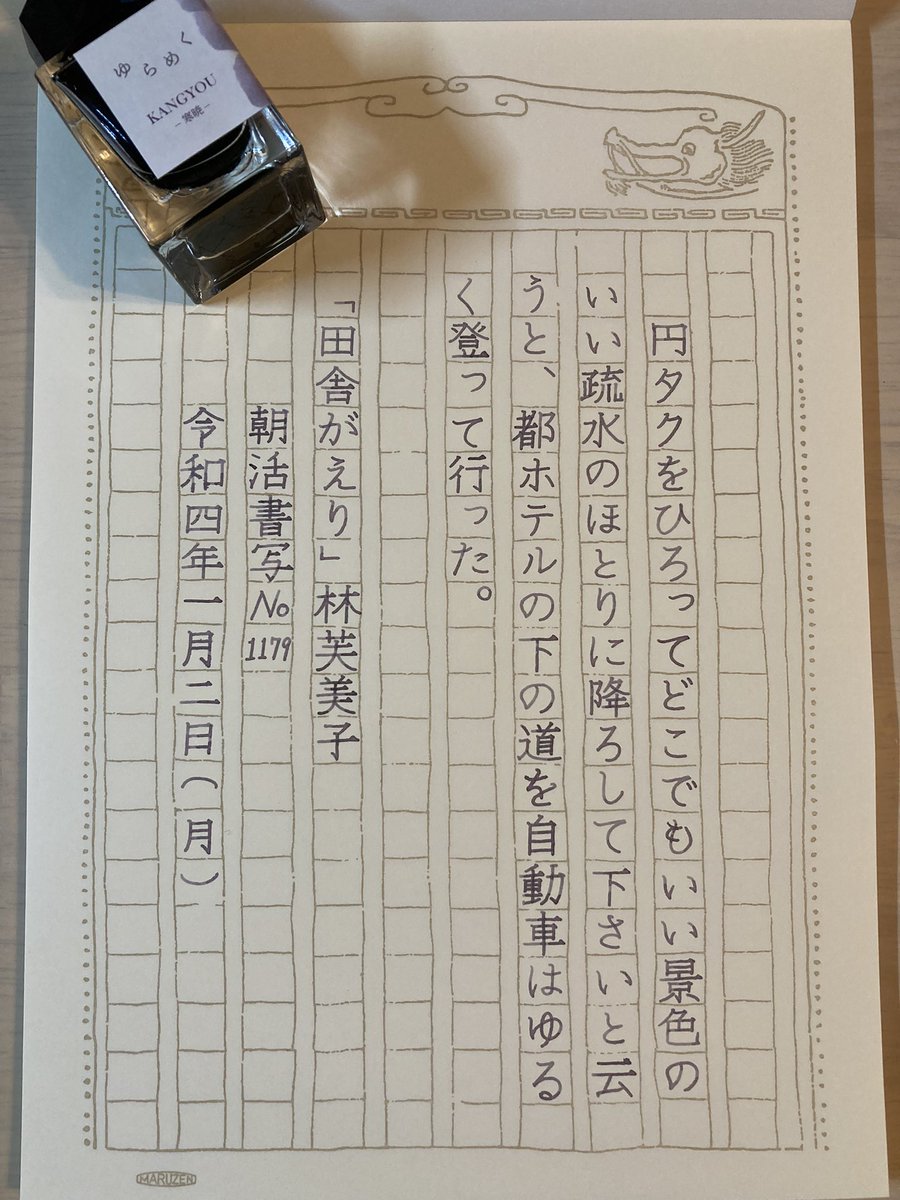 ゆらめく
KANGYOU
-寒暁-
円タクをひろってどこでもいい景色の
いい疏水のほとりに降ろして下さいと云
うと、都ホテルの下の道を自動車はゆる
く登って行った。
「田舎がえり」林芙美子
朝活書写No1179
令和四年一月二日(月)
MARUZEN